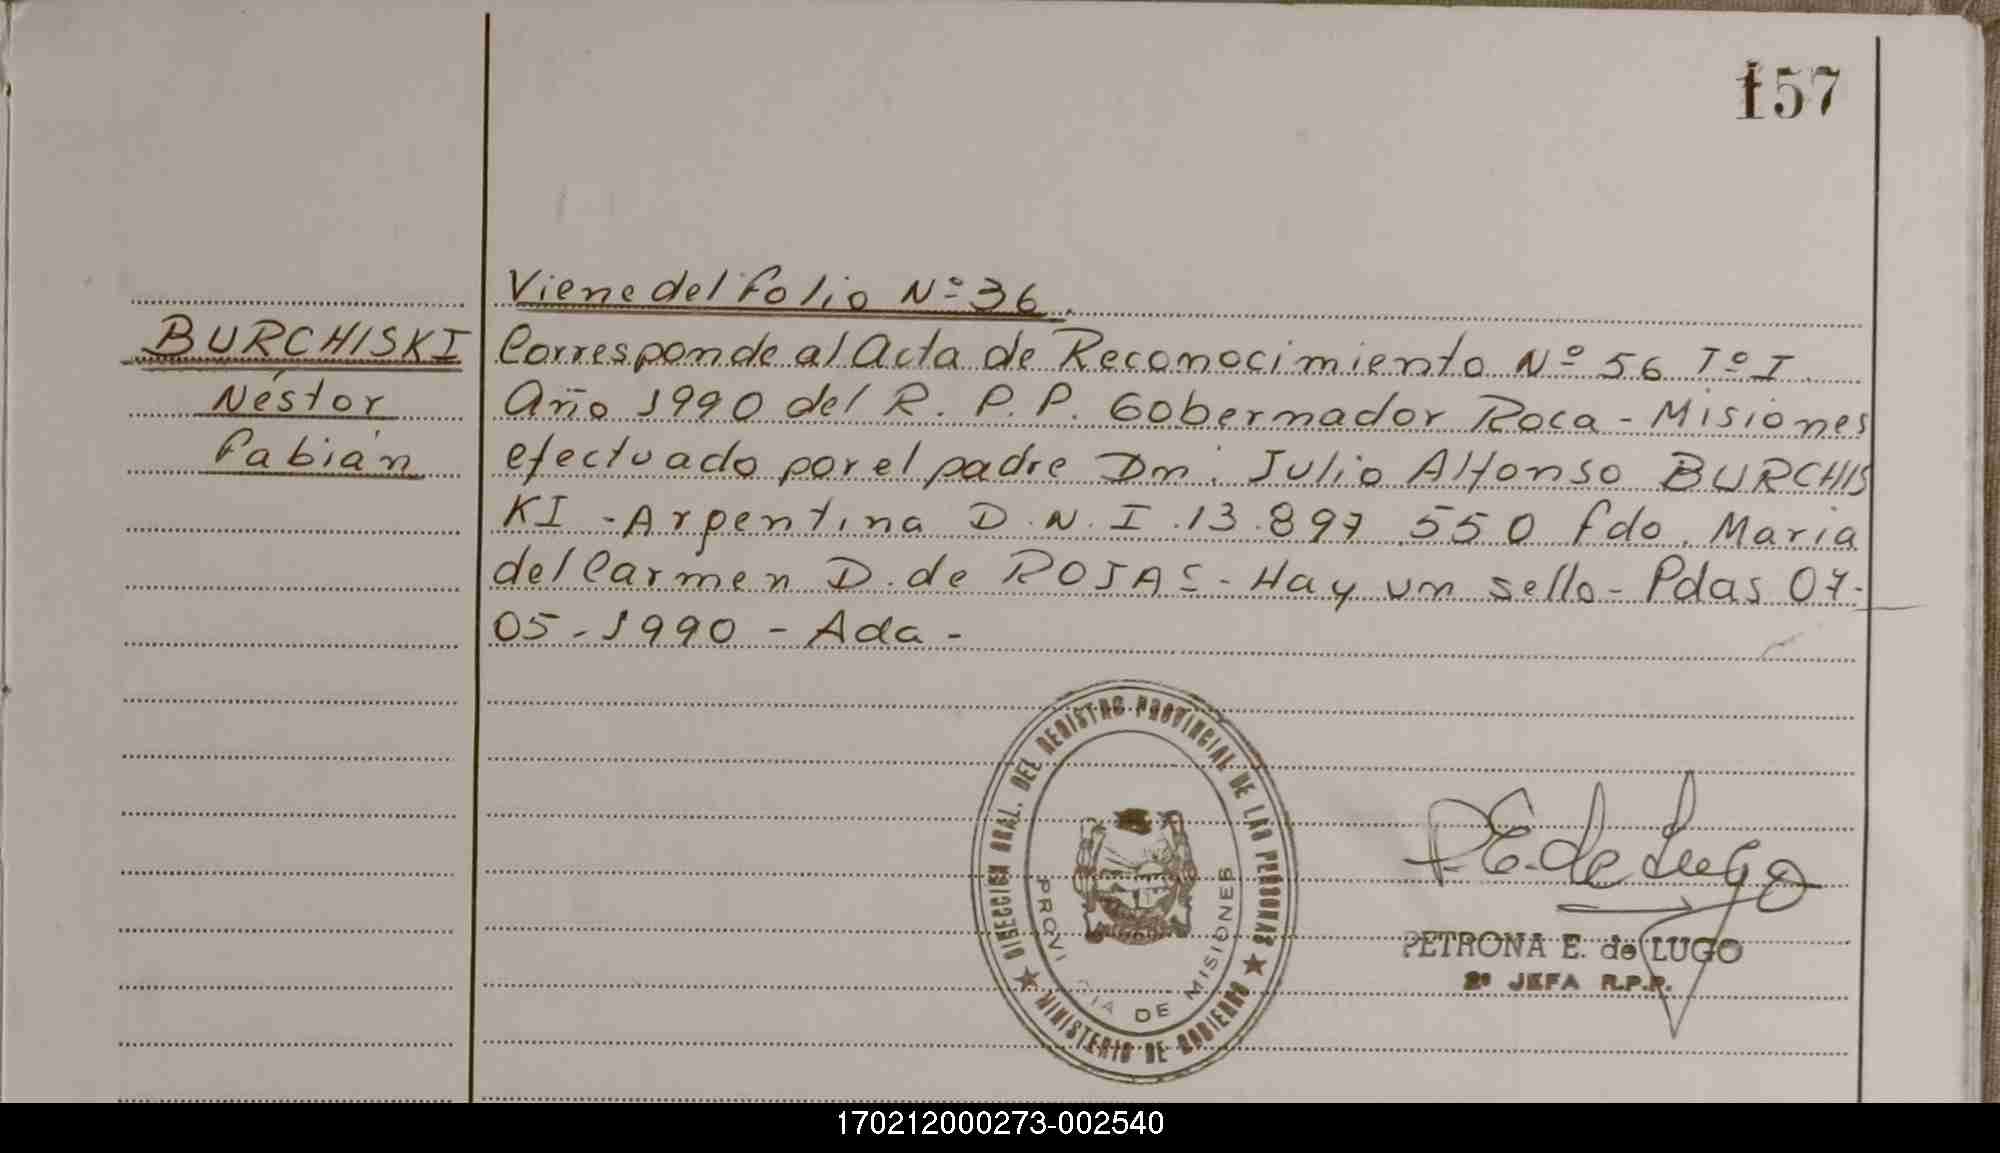 157
Viene del folio Nº 36.
BURCHISKI
Néstor
Fabián
Corresponde al Acta de Reconocimiento Nº 56 Tº I
Año 1990 del R. P. P. Gobernador Roca - Misiones
efectuado por el padre Dn. Julio Alfonso BURCHIS
KI - Argentina D.N.I. 13.897.550 fdo. Maria
del Carmen D. de ROJAS - Hay un sello - Pdas 07-
05-1990 - Ada -
DIRECCION GRAL. DEL REGISTRO PROVINCIAL DE LAS PERSONAS
MINISTERIO DE GOBIERNO
PROVINCIA DE MISIONES
P.E. de Lugo
PETRONA E. de LUGO
2º JEFA R.P.P.
170212000273-002540